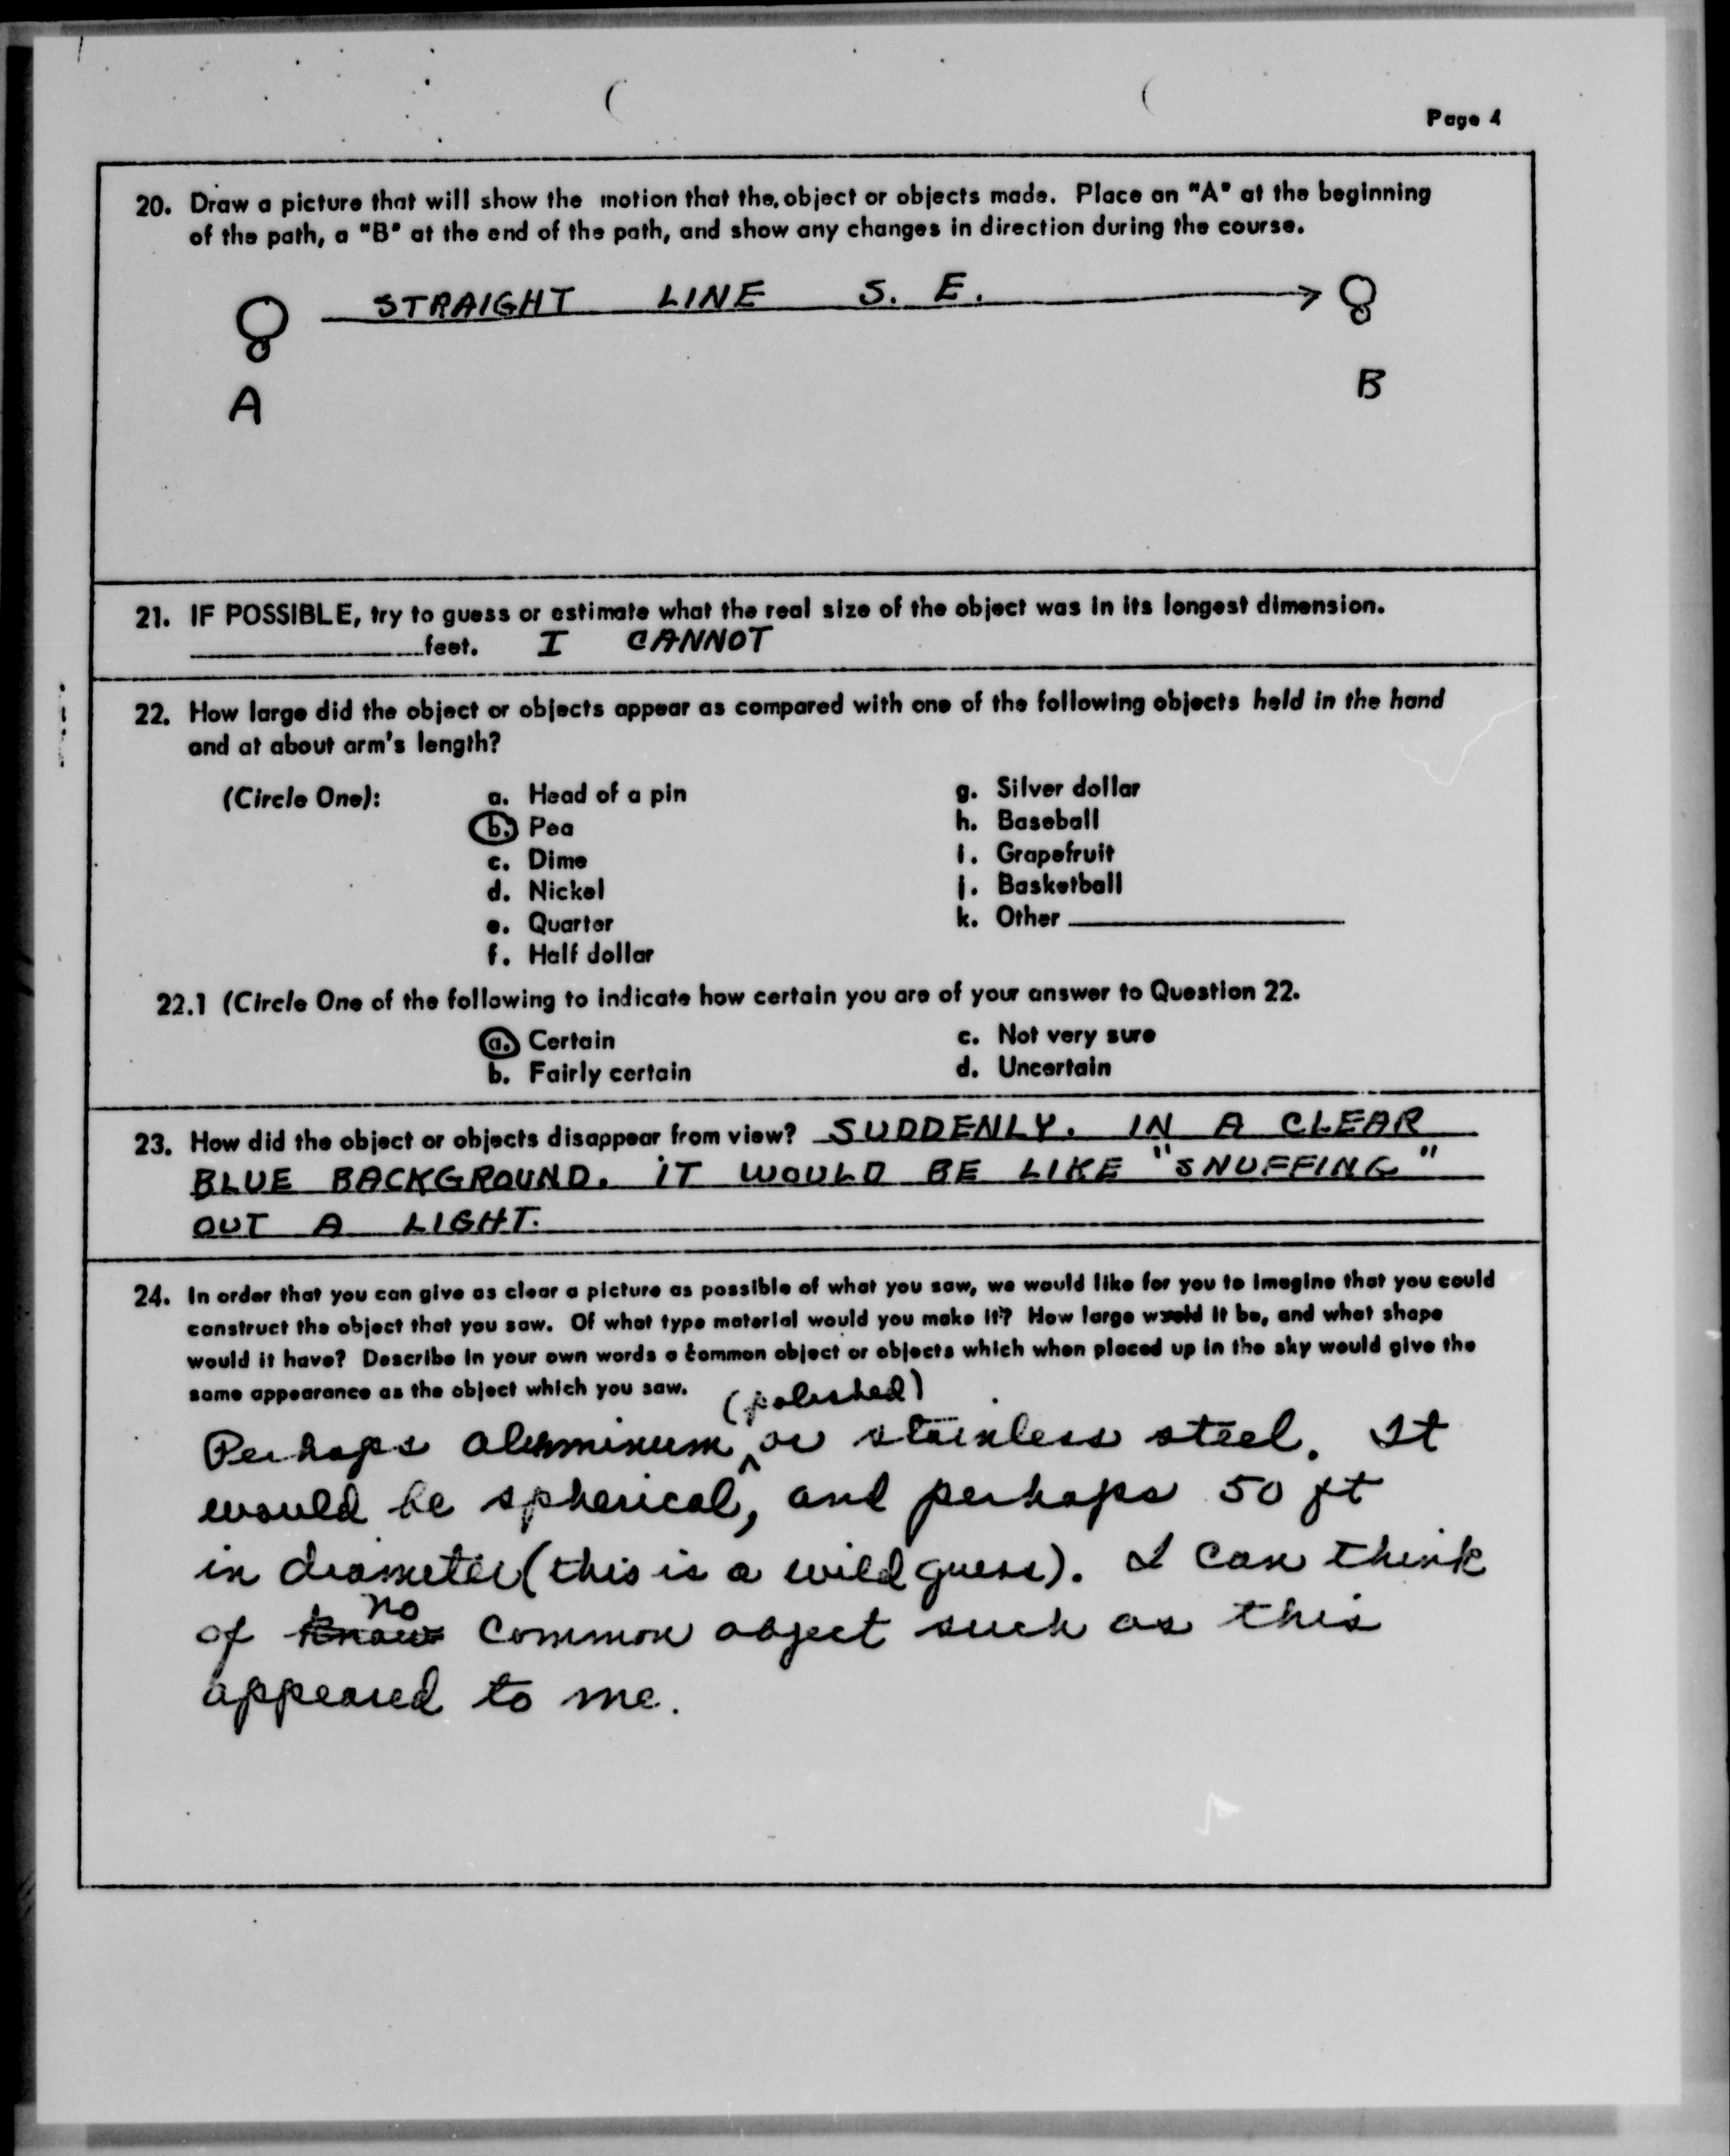 Page 4
20. Draw a picture that will show the motion that the object or objects made. Place an "A" at the beginning
of the path, a "B" at the end of the path, and show any changes in direction during the course.
STRAIGHT LINE S. E.
A
B
21. IF POSSIBLE, try to guess or estimate what the real size of the object was in its longest dimension.
feet. I CANNOT
22. How large did the object or objects appear as compared with one of the following objects held in the hand
and at about arm's length?
(Circle One): a. Head of a pin g. Silver dollar
b. Pea h. Baseball
c. Dime i. Grapefruit
d. Nickel j. Basketball
e. Quarter k. Other
f. Half dollar
22.1 (Circle One of the following to indicate how certain you are of your answer to Question 22.
a. Certain c. Not very sure
b. Fairly certain d. Uncertain
23. How did the object or objects disappear from view? SUDDENLY. IN A CLEAR
BLUE BACKGROUND. IT WOULD BE LIKE "SNUFFING"
OUT A LIGHT.
24. In order that you can give as clear a picture as possible of what you saw, we would like for you to imagine that you could
construct the object that you saw. Of what type material would you make it? How large would it be, and what shape
would it have? Describe in your own words a common object or objects which when placed up in the sky would give the
same appearance as the object which you saw.
(polished)
Perhaps aluminum ^ or stainless steel. It
would be spherical, and perhaps 50 ft
in diameter (this is a wild guess). I can think
no
of know common object such as this
appeared to me.